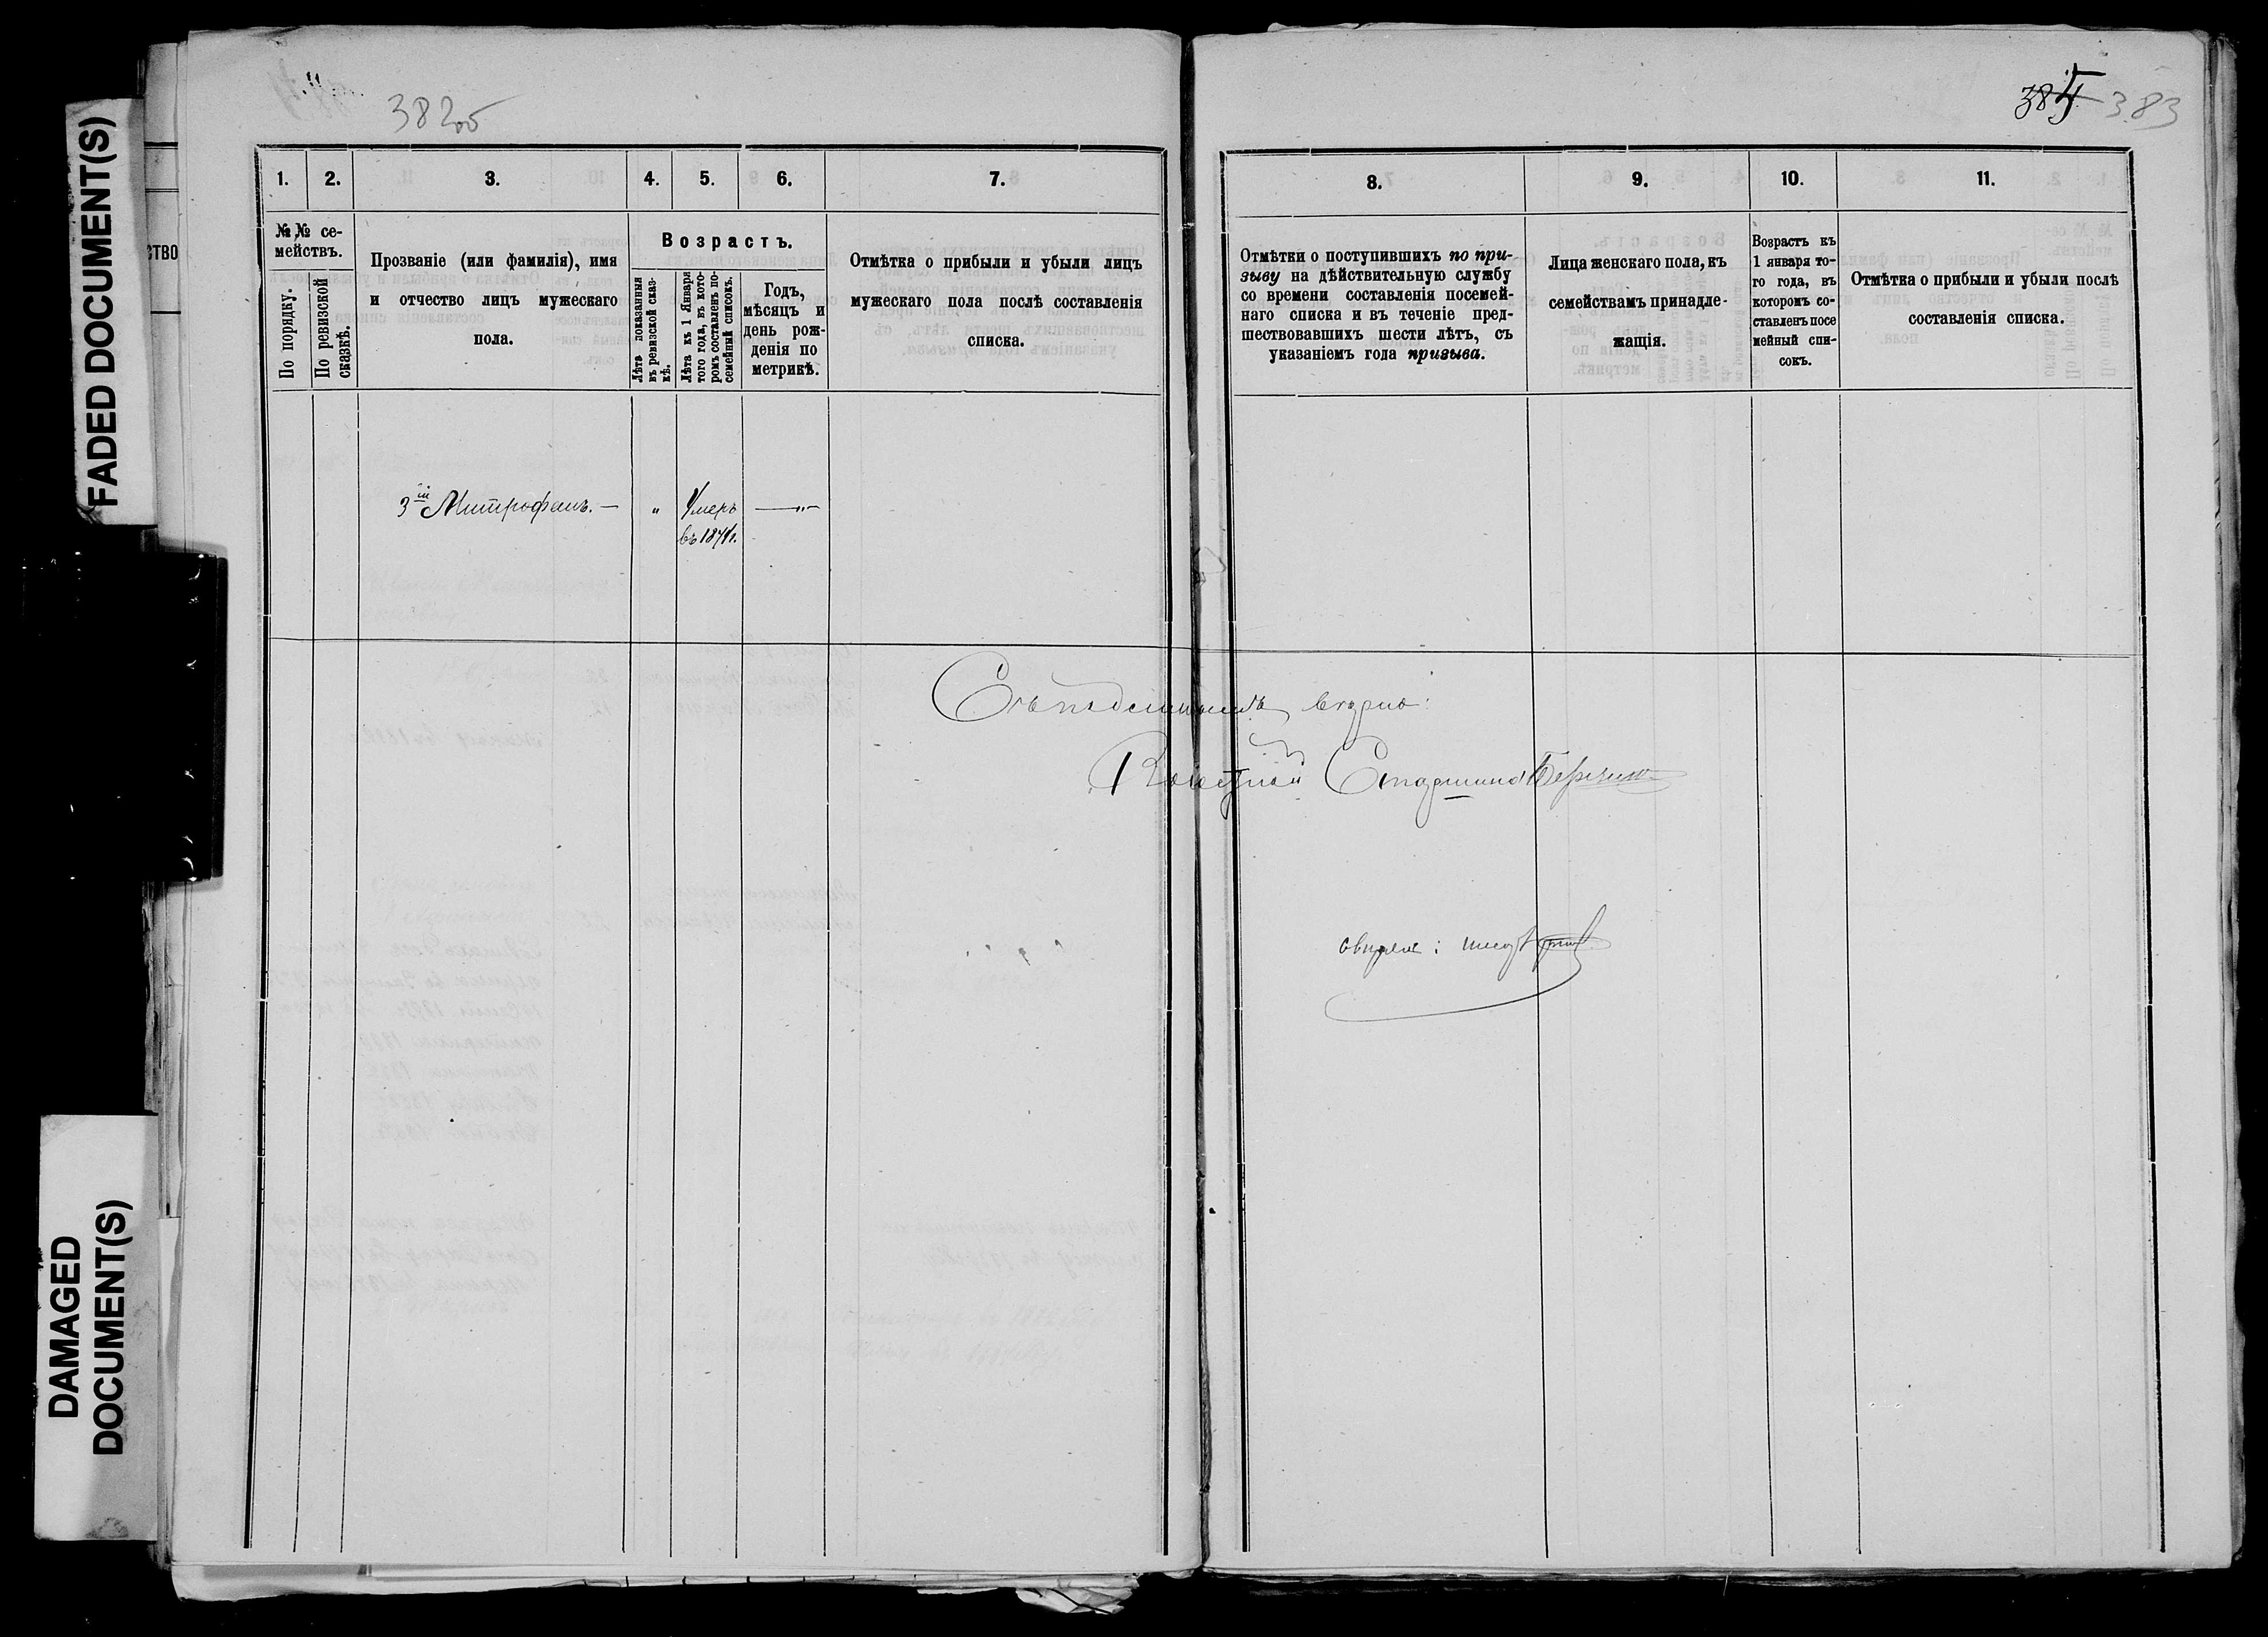 FADED DOCUMENT(S)
DAMAGED
DOCUMENT(S)
СТВО
382об
1.
2.
3.
4.
5.
6.
7.
№№ се-
мействъ.
По порядку.
По ревизской
сказкѣ.
Прозваніе (или фамилія), имя
и отчество лицъ мужескаго
пола.
Возрастъ.
Лѣта показанныя
въ ревизской сказ-
кѣ.
Лѣта къ 1 Января
того года, въ кото-
ромъ составленъ по-
семейный списокъ.
Годъ,
мѣсяцъ и
день рож-
денія по
метрикѣ.
Отмѣтка о прибыли и убыли лицъ
мужескаго пола послѣ составленія
списка.
3й Митрофанъ. — „ Умеръ —„—
въ 1871г.
385 383
8.
9.
10.
11.
Отмѣтки о поступившихъ по при-
зыву на дѣйствительную службу
со времени составленія посемей-
наго списка и въ теченіе пред-
шествовавшихъ шести лѣтъ, съ
указаніемъ года призыва.
Лица женскаго пола, къ
семействамъ принадле-
жащія.
Возрастъ къ
1 января то-
го года, въ
которомъ со-
ставленъ посе
мейный спи-
сокъ.
Отмѣтка о прибыли и убыли послѣ
составленія списка.
Съ подлиннымъ вѣрно:
Волостной Старшина
свѣрялъ: